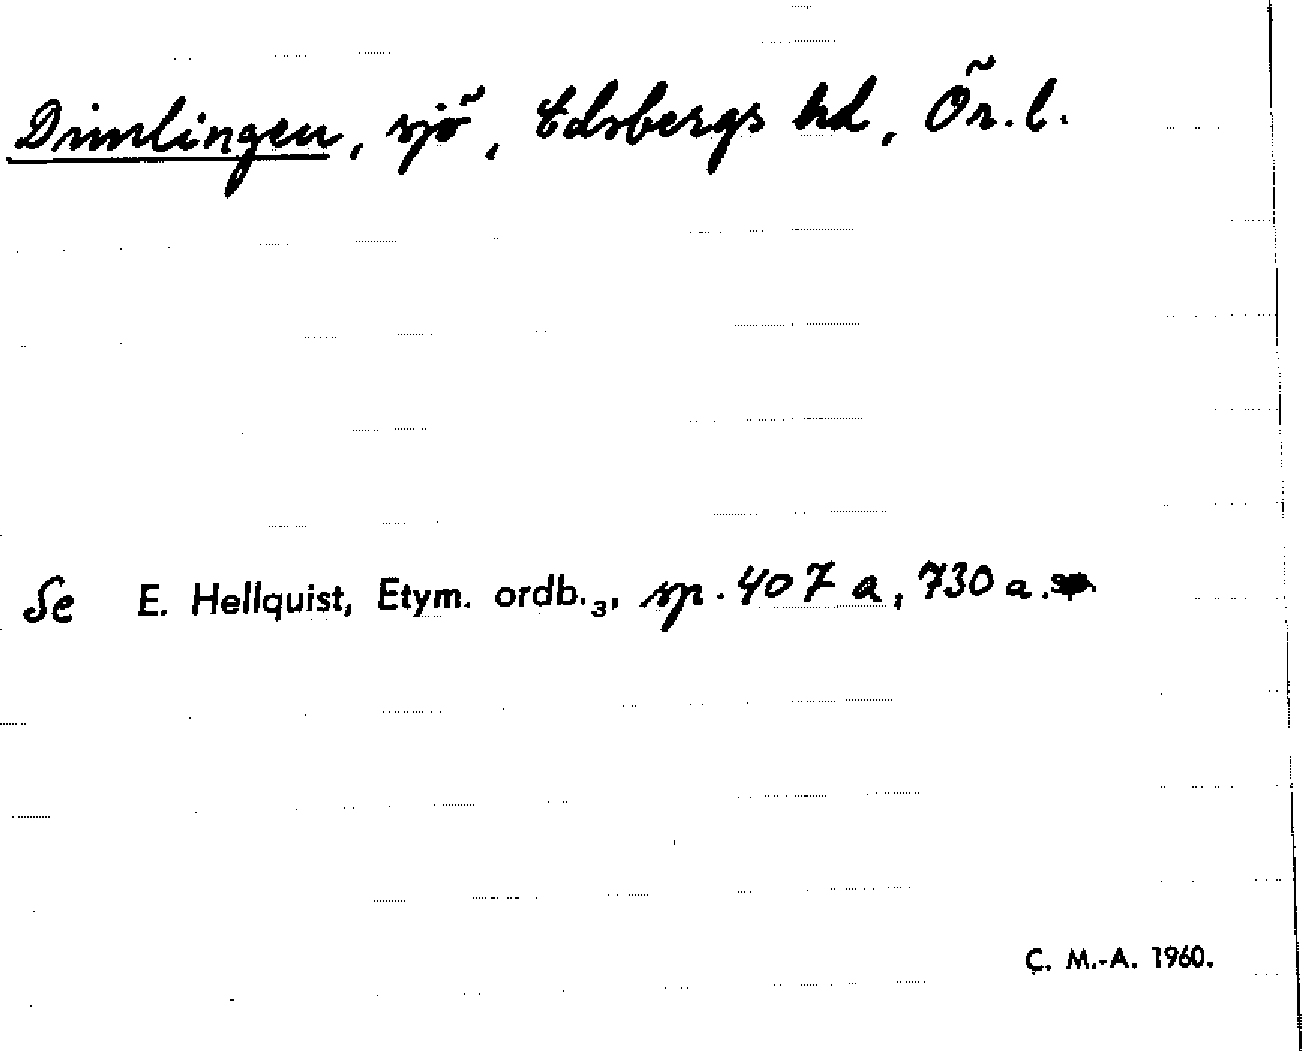 Dimlingen, sjö, Edsbergs hd, Ör. l.
Se E. Hellquist, Etym. ordb.₃, sp. 407 a, 730 a.
C. M.-A. 1960.